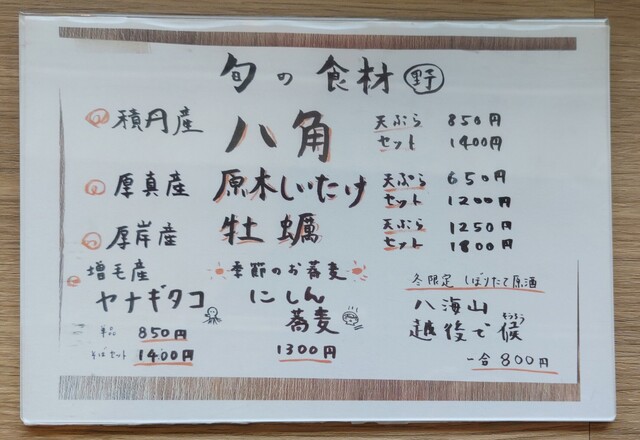 旬の食材 野
積丹産 八角 天ぷら 850円
セット 1400円
厚真産 原木しいたけ 天ぷら 650円
セット 1200円
厚岸産 牡蠣 天ぷら 1250円
セット 1800円
増毛産
ヤナギタコ
単品 850円
そばセット 1400円
季節のお蕎麦
にしん
蕎麦
1300円
冬限定 しぼりたて原酒
八海山
越後で候
そうろう
一合 800円